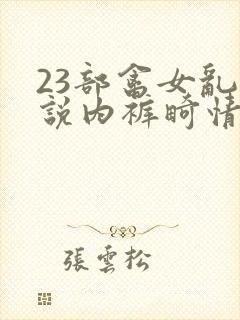 23部畲女亂
説内裤畸情
張雲松